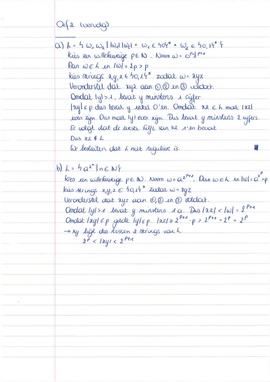 a) L = { w₁w₂ | |w₁| = |w₂|
Kies een willekeurige p ∈ ℕ. Neem w =
Dan w ∈ L en |w| = 2p > p
Kies strings x,y,z ∈ {0,1}* zodat w = xyz
Veronderstel dat xyz aan ①,② en ③ voldoet.
Omdat |y| > 1, bevat y minstens 1 cijfer
|xy| ≤ p dus bevat y enkel 0'en. Omdat xz ∈ L moet |xz|
even zijn. Dus moet |y| even zijn. Dus bevat y minstens 2 cijfers.
Er volgt dat de eerste helft van xz 1 en bevat
Dus xz ∉ L
We besluiten dat L niet regulier is.
b) L = { a^2^n | n ∈ ℕ }
Kies een willekeurige p ∈ ℕ. Neem w = a^2^p+1. Dan w ∈ L en |w| =
Kies strings x,y,z ∈ {0,1}* zodat w = xyz
Veronderstel dat xyz aan ①,② en ③ voldoet.
Omdat |y| > 1 bevat y minstens 1 a. Dus |xz| < |w| = 2^p+1
Omdat |xy| ≤ p geldt |y| ≤ p. |xz| ≥ 2^p+1 - p > 2^p+1 - 2^p = 2^p
2^p < |xz| < 2^p+1